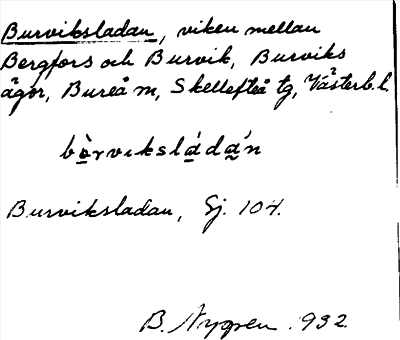 Burviksladan, viken mellan
Bergfors och Burvik, Burviks
ägor, Bureå m, Skellefteå tg, Västerb. l.
bòrviksládán
Burviksladan, Sj. 104.
B. Nygren 1932.